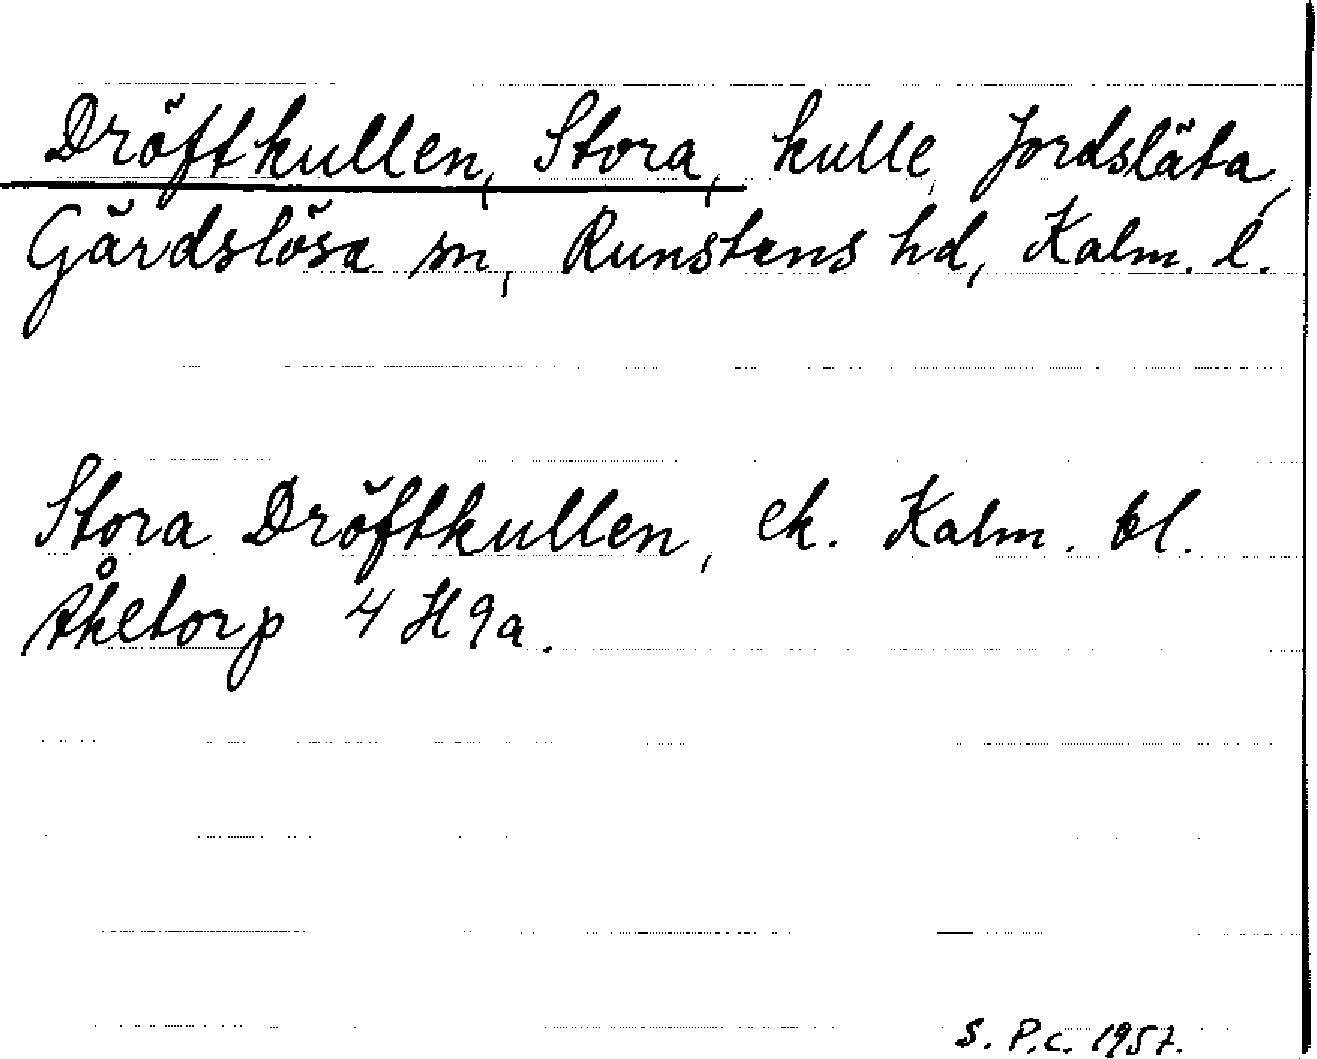 Dröftkullen, Stora, kulle, Jordsläta,
Gärdslösa sn, Runstens hd, Kalm. l.
Stora Dröftkullen, ek. Kalm. bl.
Åketorp 4 H 9a.
S. P.c. 1957.